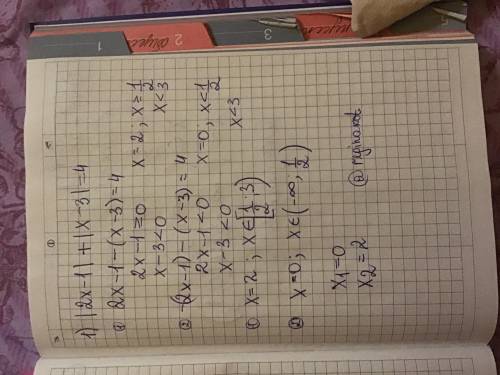 1) |2x-1| + |x-3| = 4
① 2x-1-(x-3)=4
2x-1≥0 x=2; x≥1/2
x-3<0 x<3
② -(2x-1)-(x-3)=4
2x-1<0 x=0; x<1/2
x-3<0 x<3
① x=2; x∈[1/2; 3)
② x=0; x∈(-∞; 1/2)
x1=0
x2=2
1
2
3